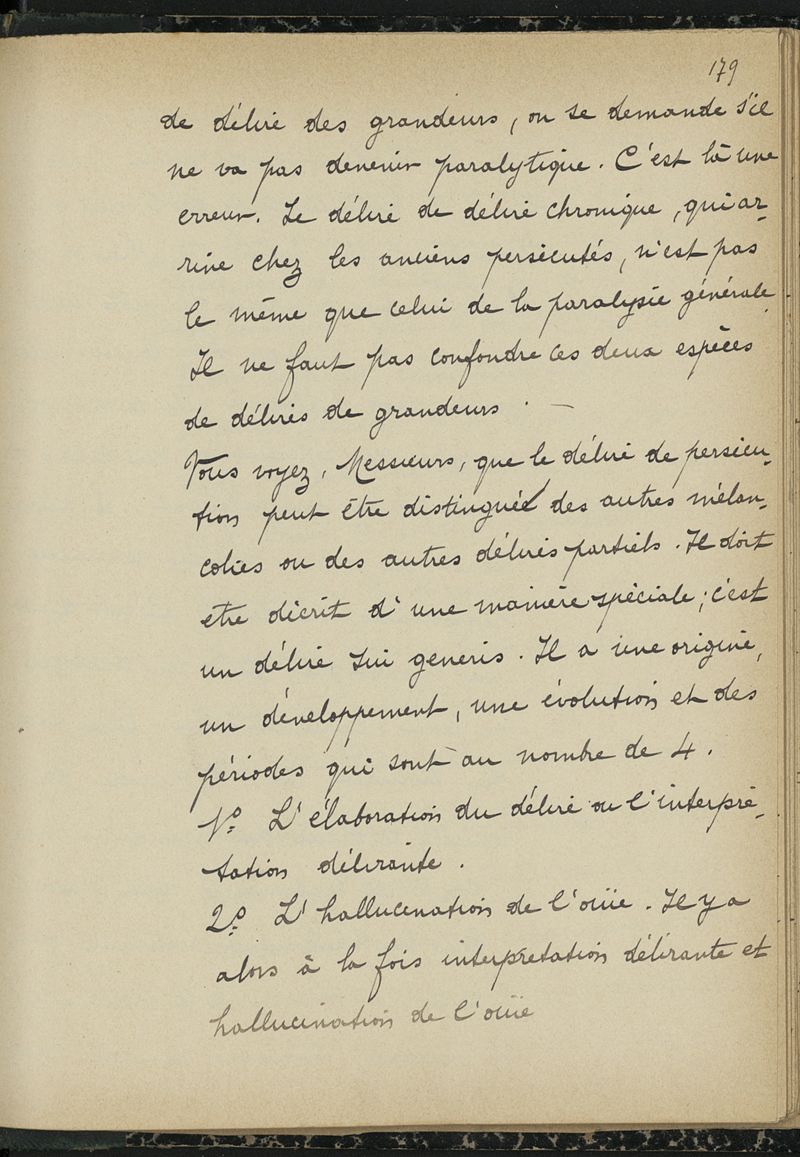 179
de délire des grandeurs, on se demande s'il
ne va pas devenir paralytique. C'est là une
erreur. Le délire de délire chronique, qui ar-
rive chez les anciens persécutés, n'est pas
le même que celui de la paralysie générale.
Il ne faut pas confondre ces deux espèces
de délires de grandeurs. —
Vous voyez, Messieurs, que le délire de persécu-
tion peut être distingué des autres mélan-
colies ou des autres délires partiels. Il doit
etre décrit d'une manière spéciale; c'est
un délire sui generis. Il a une origine,
un développement, une évolution et des
périodes qui sont au nombre de 4.
1º L'élaboration du délire ou l'interpré-
tation délirante.
2º L'hallucination de l'ouïe. Il y a
alors à la fois interprétation délirante et
hallucination de l'ouïe